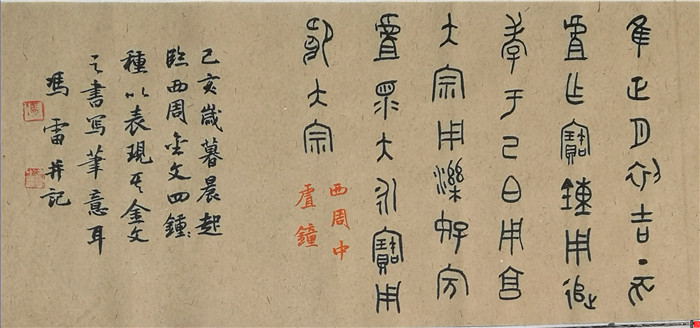 隹正月初吉丁亥
虘乍寶鐘用追
孝于己白用亯
大宗用濼好宗
虘眔蔡永寶用
卲大宗
西周中
虘鐘
己亥歲暮晨起
臨西周金文四鐘
種以表現其金文
之書寫筆意耳
馮雷并記
馮